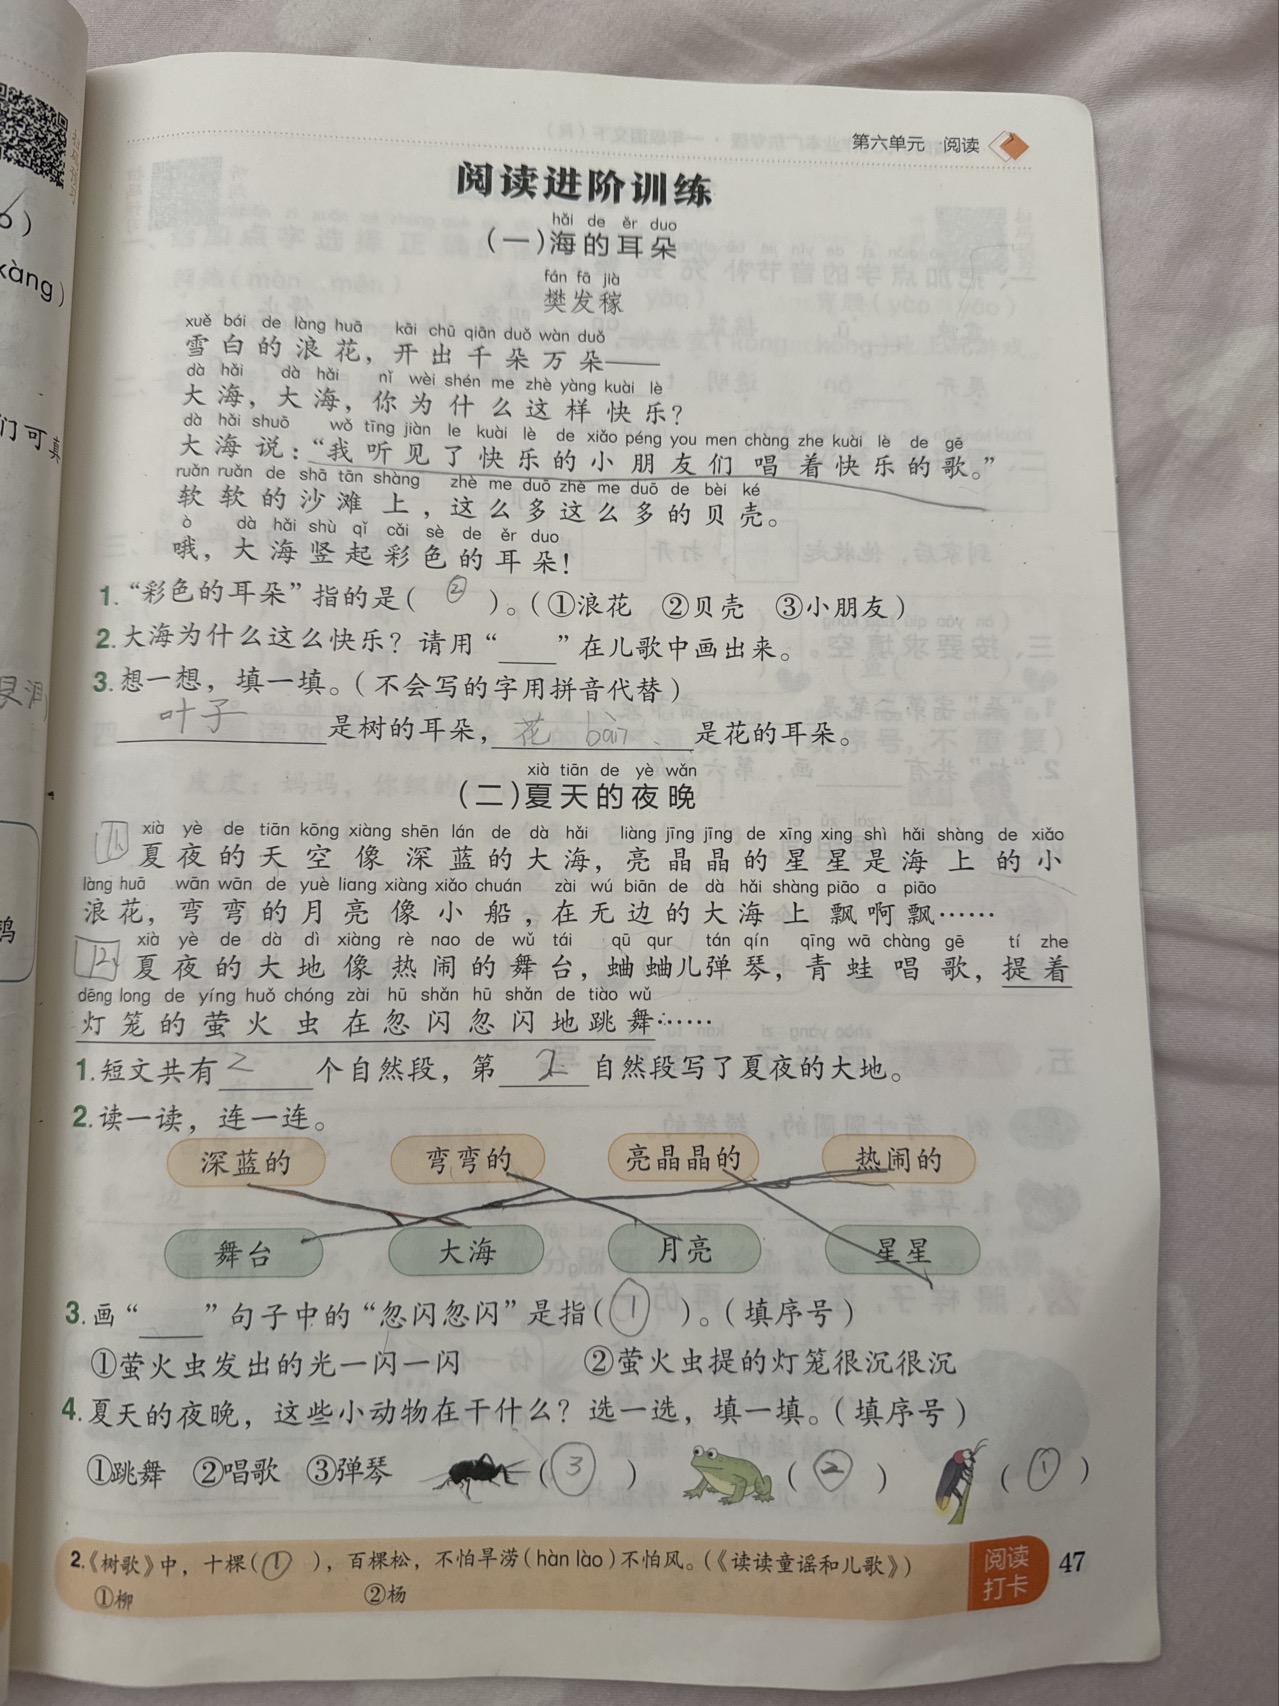 第六单元 阅读
阅读进阶训练
hǎi de ěr duo
(一)海的耳朵
fán fā jià
樊发稼
xuě bái de làng huā kāi chū qiān duǒ wàn duǒ
雪白的浪花，开出千朵万朵——
dà hǎi dà hǎi nǐ wèi shén me zhè yàng kuài lè
大海，大海，你为什么这样快乐？
dà hǎi shuō wǒ tīng jiàn le kuài lè de xiǎo péng you men chàng zhe kuài lè de gē
大海说：“我听见了快乐的小朋友们唱着快乐的歌。”
ruǎn ruǎn de shā tān shàng zhè me duō zhè me duō de bèi ké
软软的沙滩上，这么多这么多的贝壳。
ò dà hǎi shù qǐ cǎi sè de ěr duo
哦，大海竖起彩色的耳朵！
1.“彩色的耳朵”指的是( ② )。(①浪花 ②贝壳 ③小朋友)
2.大海为什么这么快乐？请用“____”在儿歌中画出来。
3.想一想，填一填。(不会写的字用拼音代替)
叶子是树的耳朵，花 bàn是花的耳朵。
xià tiān de yè wǎn
(二)夏天的夜晚
xià yè de tiān kōng xiàng shēn lán de dà hǎi liàng jīng jīng de xīng xing shì hǎi shàng de xiǎo
夏夜的天空像深蓝的大海，亮晶晶的星星是海上的小
làng huā wān wān de yuè liang xiàng xiǎo chuán zài wú biān de dà hǎi shàng piāo a piāo
浪花，弯弯的月亮像小船，在无边的大海上飘啊飘……
xià yè de dà dì xiàng rè nao de wǔ tái qū qur tán qín qīng wā chàng gē tí zhe
夏夜的大地像热闹的舞台，蛐蛐儿弹琴，青蛙唱歌，提着
dēng long de yíng huǒ chóng zài hū shǎn hū shǎn de tiào wǔ
灯笼的萤火虫在忽闪忽闪地跳舞……
1.短文共有2个自然段，第2自然段写了夏夜的大地。
2.读一读，连一连。
深蓝的 弯弯的 亮晶晶的 热闹的
舞台 大海 月亮 星星
3.画“____”句子中的“忽闪忽闪”是指( ① )。(填序号)
①萤火虫发出的光一闪一闪 ②萤火虫提的灯笼很沉很沉
4.夏天的夜晚，这些小动物在干什么？选一选，填一填。(填序号)
①跳舞 ②唱歌 ③弹琴 ( ③ ) ( ② ) ( ① )
2.《树歌》中，十棵( ① )，百棵松，不怕旱涝(hàn lào)不怕风。(《读读童谣和儿歌》)
①柳 ②杨
阅读
打卡
47